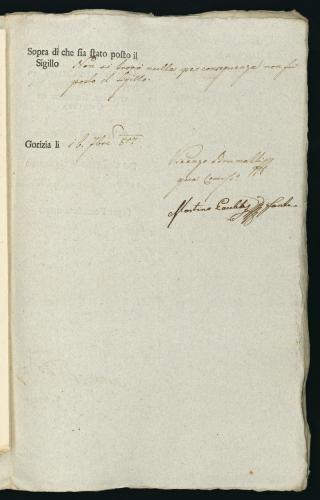 Sopra di che sia stato posto il
Sigillo Non si trovò nulla per conseguenza non fu
posto il Sigillo.
Gorizia li 16. 807
Vicenzo
qua
Martino